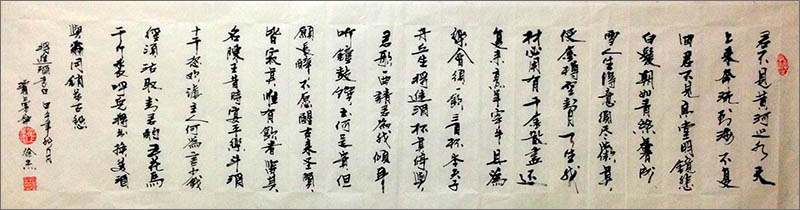 君不見黃河之水天
上來奔流到海不复
回君不見高堂明鏡悲
白髮朝如青絲暮成
雪人生得意須盡歡莫
使金樽空對月天生我
材必用有千金散盡還
复来烹羊宰牛且為
樂會須一飲三百杯岑夫子
丹丘生將進酒杯莫停與
君歌一曲請君為我傾耳
听鐘鼓饌玉何足貴但
願長醉不愿醒古來圣賢
皆寂寞惟有飲者留其
名陳王昔時宴平樂斗酒
十千恣歡謔主人何為言少錢
徑須沽取對君酌五花馬
千金裘呼兒將出換美酒
與爾同銷萬古愁
將進酒李白 甲午年秋月